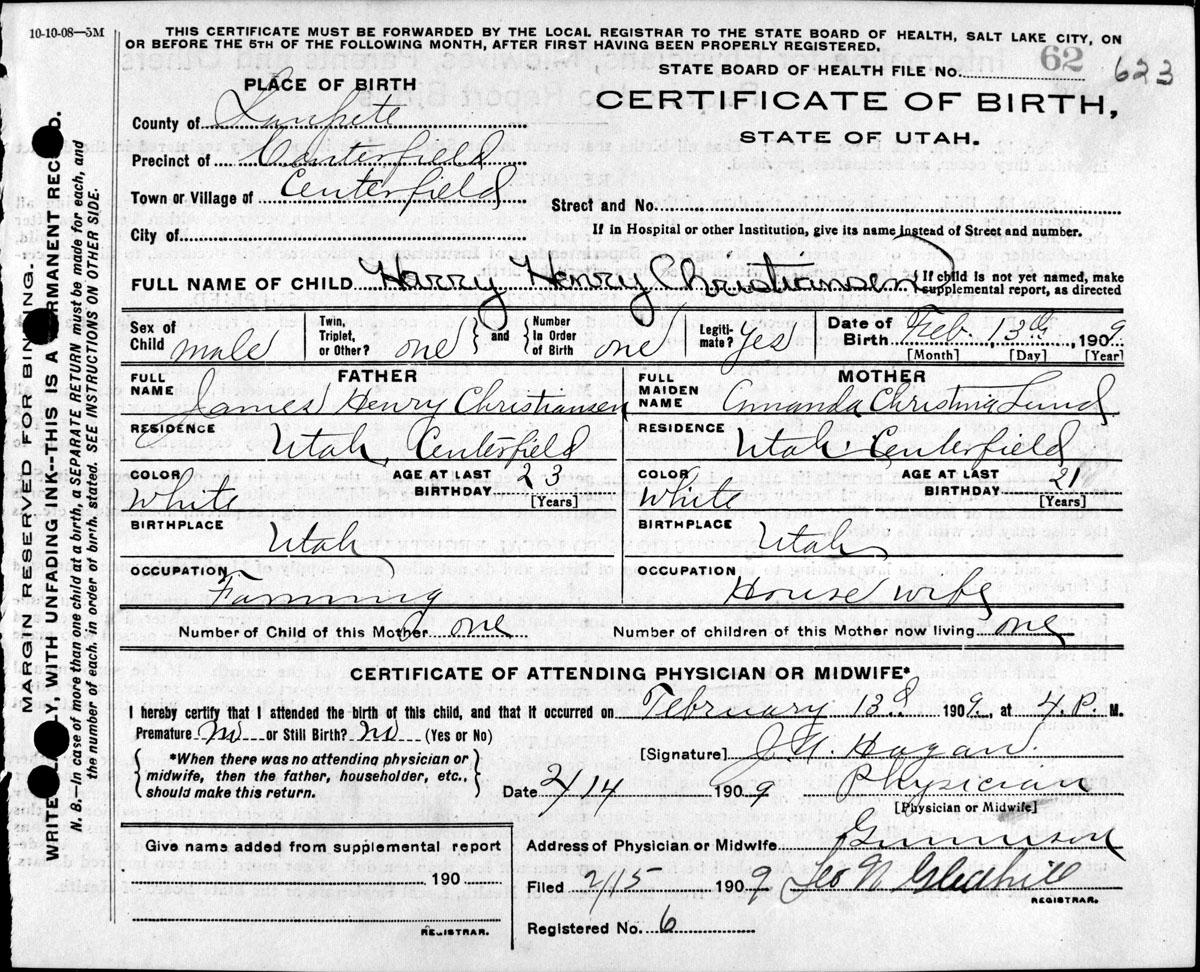 10-10-08—5M
THIS CERTIFICATE MUST BE FORWARDED BY THE LOCAL REGISTRAR TO THE STATE BOARD OF HEALTH, SALT LAKE CITY, ON
OR BEFORE THE 5TH OF THE FOLLOWING MONTH, AFTER FIRST HAVING BEEN PROPERLY REGISTERED.
STATE BOARD OF HEALTH FILE NO. 62 623
PLACE OF BIRTH
CERTIFICATE OF BIRTH,
STATE OF UTAH.
County of Sanpete
Precinct of Centerfield
Town or Village of Centerfield
Street and No.
City of
If in Hospital or other Institution, give its name instead of Street and number.
FULL NAME OF CHILD Harry Henry Christiansen { If child is not yet named, make
supplemental report, as directed
Sex of Child male
Twin, Triplet, or Other? one } and { Number In Order of Birth one
Legiti- mate? yes
Date of Birth Feb 13th, 1909
[Month] [Day] [Year]
FATHER
FULL NAME James Henry Christiansen
RESIDENCE Utah, Centerfield
COLOR White AGE AT LAST BIRTHDAY 23 [Years]
BIRTHPLACE Utah
OCCUPATION Farming
MOTHER
FULL MAIDEN NAME Amanda Christina Lund
RESIDENCE Utah, Centerfield
COLOR White AGE AT LAST BIRTHDAY 21 [Years]
BIRTHPLACE Utah
OCCUPATION House wife
Number of Child of this Mother one
Number of children of this Mother now living one
CERTIFICATE OF ATTENDING PHYSICIAN OR MIDWIFE*
I hereby certify that I attended the birth of this child, and that it occurred on February 13d 1909, at 4.P. M.
Premature No or Still Birth? No (Yes or No)
{ *When there was no attending physician or
midwife, then the father, householder, etc.,
should make this return. }
[Signature] Hagan.
Date 2/14 1909 Physician
[Physician or Midwife]
Give name added from supplemental report
190
REGISTRAR.
Address of Physician or Midwife Gunnison
Filed 2/15 1909 Leo N Gledhill
REGISTRAR.
Registered No. 6
MARGIN RESERVED FOR BINDING.
LY, WITH UNFADING INK--THIS IS A
N. B.—In case of more than one child at a birth, a SEPARATE RETURN must be made for each, and
the number of each, in order of birth, stated. SEE INSTRUCTIONS ON OTHER SIDE.